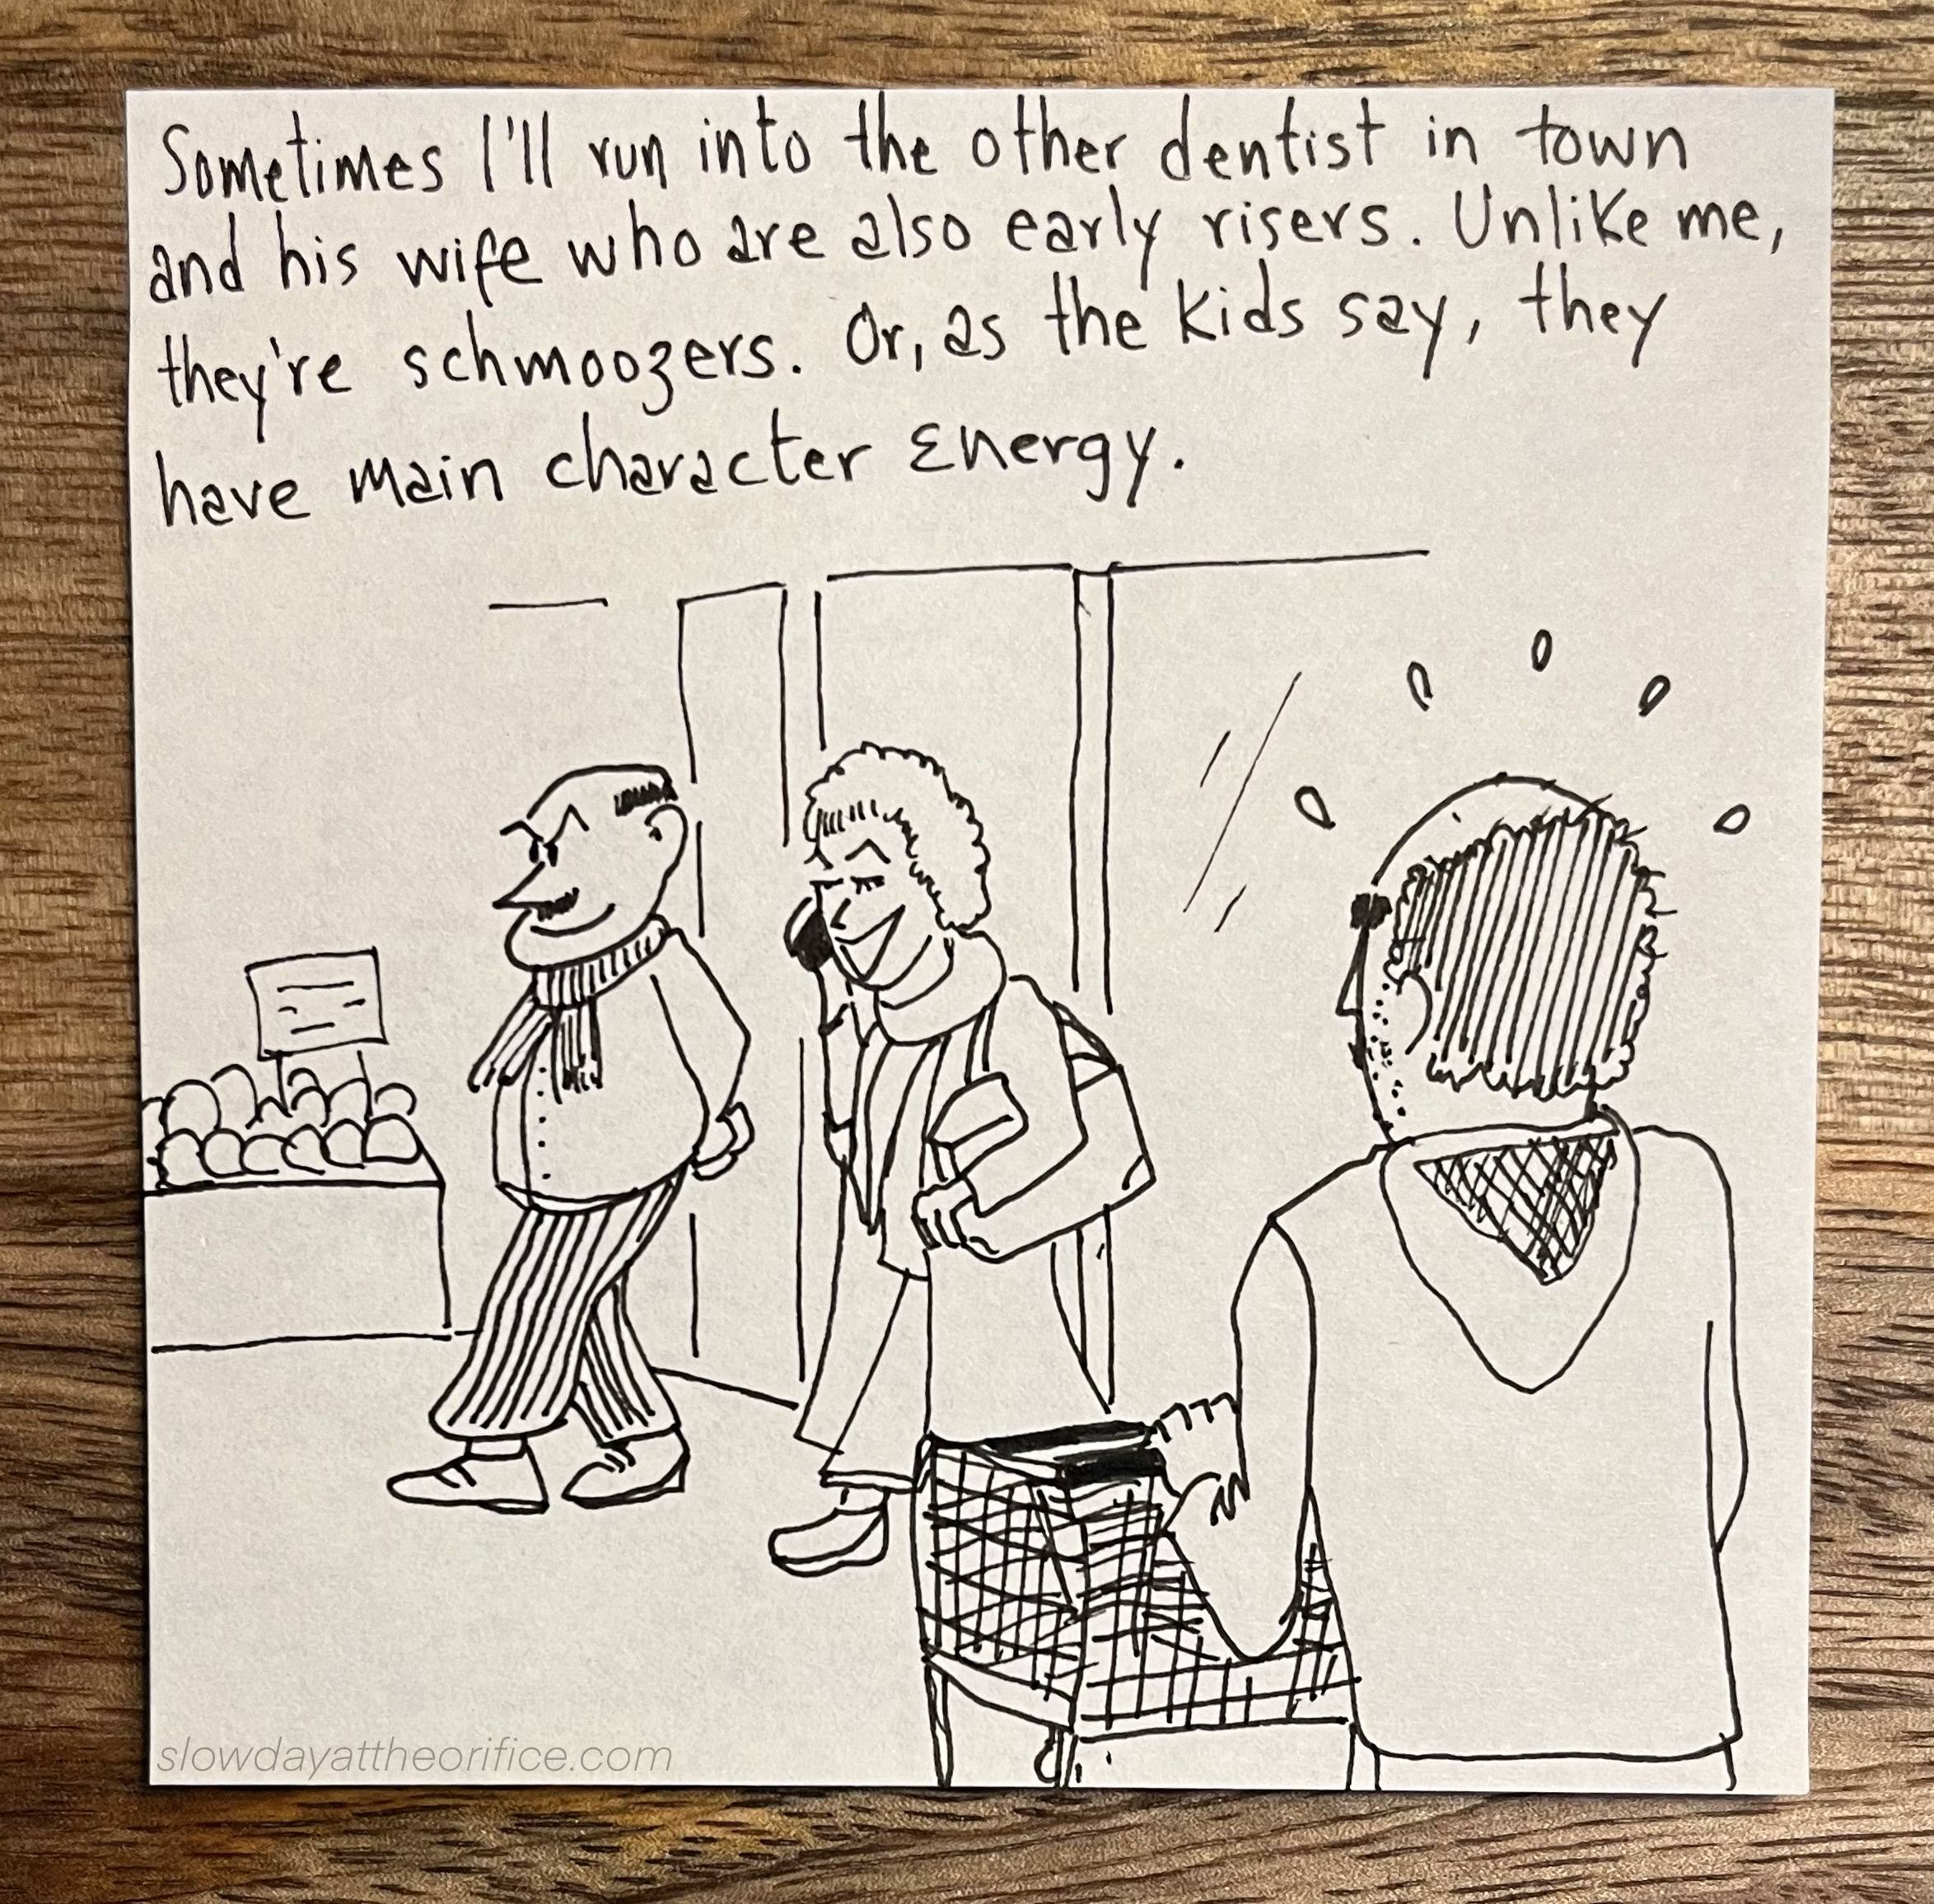 Sometimes I'll run into the other dentist in town
and his wife who are also early risers. Unlike me,
they're schmoozers. Or, as the kids say, they
have main character energy.
slowdayattheorifice.com